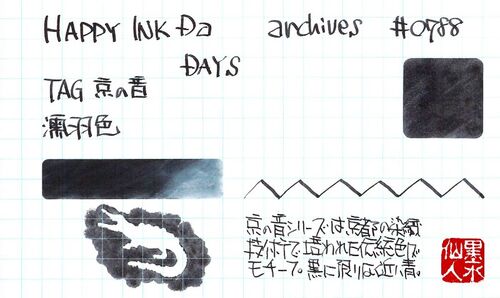 HAPPY INK Da archives #0788
DAYS
TAG 京の音
濡羽色
京の音シリーズは京都の染織
技術で培われた伝統色で
モチーフ。黒に限りなく近い青。
仙人 墨水